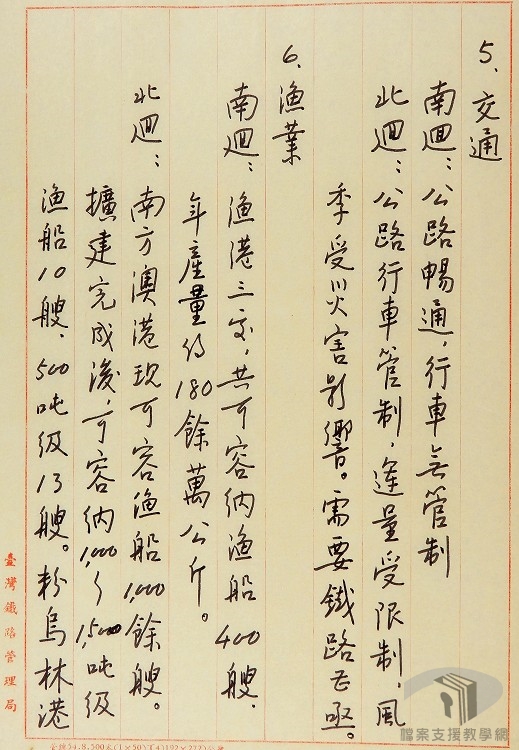 5、交通
南迴：公路暢通，行車無管制
北迴：公路行車管制，運量受限制，風
季受災害影響。需要鐵路至亟。
6、漁業
南迴：漁港三处，共可容納漁船400艘，
年產量約180餘萬公斤。
北迴：南方澳港現可容漁船1,000餘艘。
擴建完成後，可容納1,000～1,500吨級
漁船10艘，500吨級13艘。粉鳥林港
臺灣鐵路管理局
檔案支援教學網